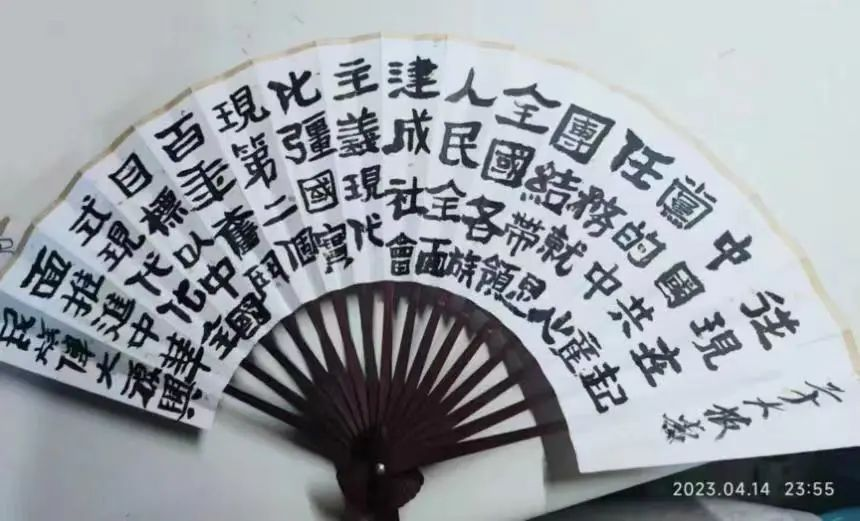 從現在起
中國共產
黨的中心
任務就是
團結帶領
全國各族
人民全面
建成社會
主義現代
化彊國實
現第二個
百年奮鬥
目標以中國
式現代化全
面推進中華
民族偉大復興
2023.04.14 23:55